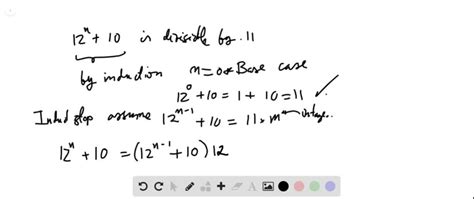 12^n + 10 is divisible by 11
by induction n=0 Base case
12^0 + 10 = 1 + 10 = 11 ✓
Induct step assume 12^{n-1} + 10 = 11 * m integer.
12^n + 10 = (12^{n-1} + 10) 12